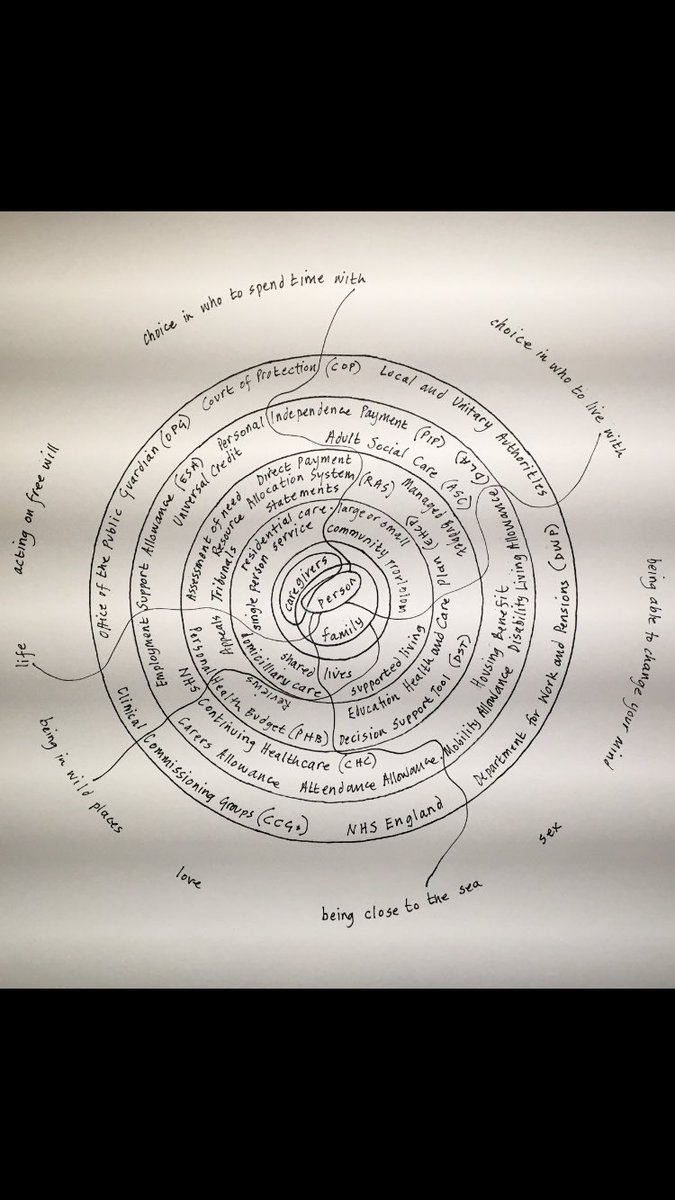 choice in who to spend time with
choice in who to live with
being able to change your mind
sex
being close to the sea
love
being in wild places
life
acting on free will
Office of the Public Guardian (OPG)
Court of Protection (COP)
Local and Unitary Authorities
Department for Work and Pensions (DWP)
NHS England
Clinical Commissioning Groups (CCGs)
Employment Support Allowance (ESA)
Universal Credit
Personal Independence Payment (PIP)
Adult Social Care (ASC)
Disability Living Allowance (DLA)
Housing Benefit
Mobility Allowance
Attendance Allowance
Carers Allowance
NHS Continuing Healthcare (CHC)
Assessment of need
Resource Allocation System (RAS)
Direct Payment
Statements
Managed Budget
Education Health and Care Plan (EHCP)
Decision Support Tool (DST)
Personal Health Budget (PHB)
Reviews
Appeals Tribunals
residential care - large or small
single person service
community provision
supported living
shared lives
domicilliary care
caregivers
person
family